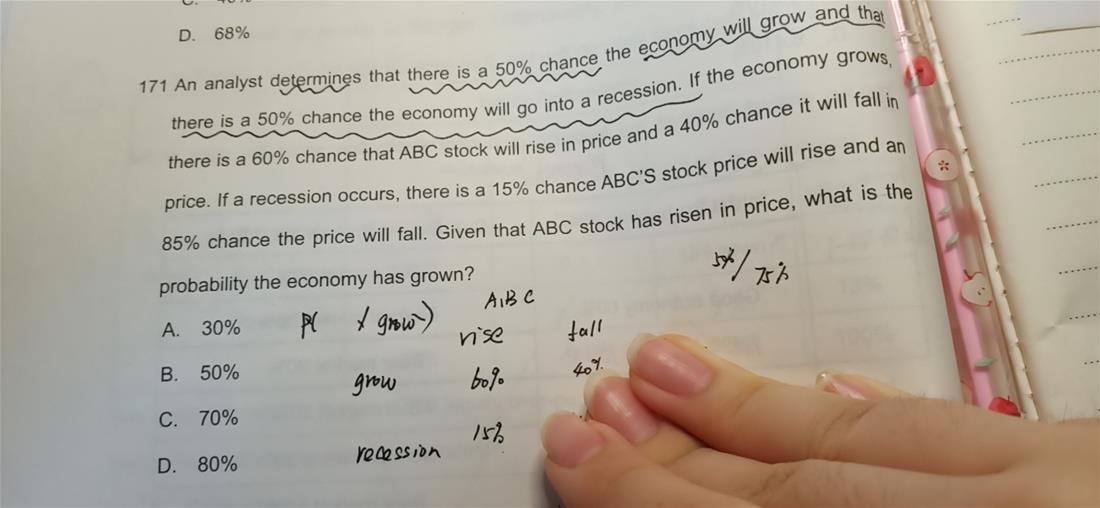 D. 68%
171 An analyst determines that there is a 50% chance the economy will grow and that
there is a 50% chance the economy will go into a recession. If the economy grows,
there is a 60% chance that ABC stock will rise in price and a 40% chance it will fall in
price. If a recession occurs, there is a 15% chance ABC'S stock price will rise and an
85% chance the price will fall. Given that ABC stock has risen in price, what is the
probability the economy has grown?
/ 75%
A. 30%
P( grow)
ABC
rise fall
B. 50%
grow 60% 40%
C. 70%
15%
D. 80%
recession